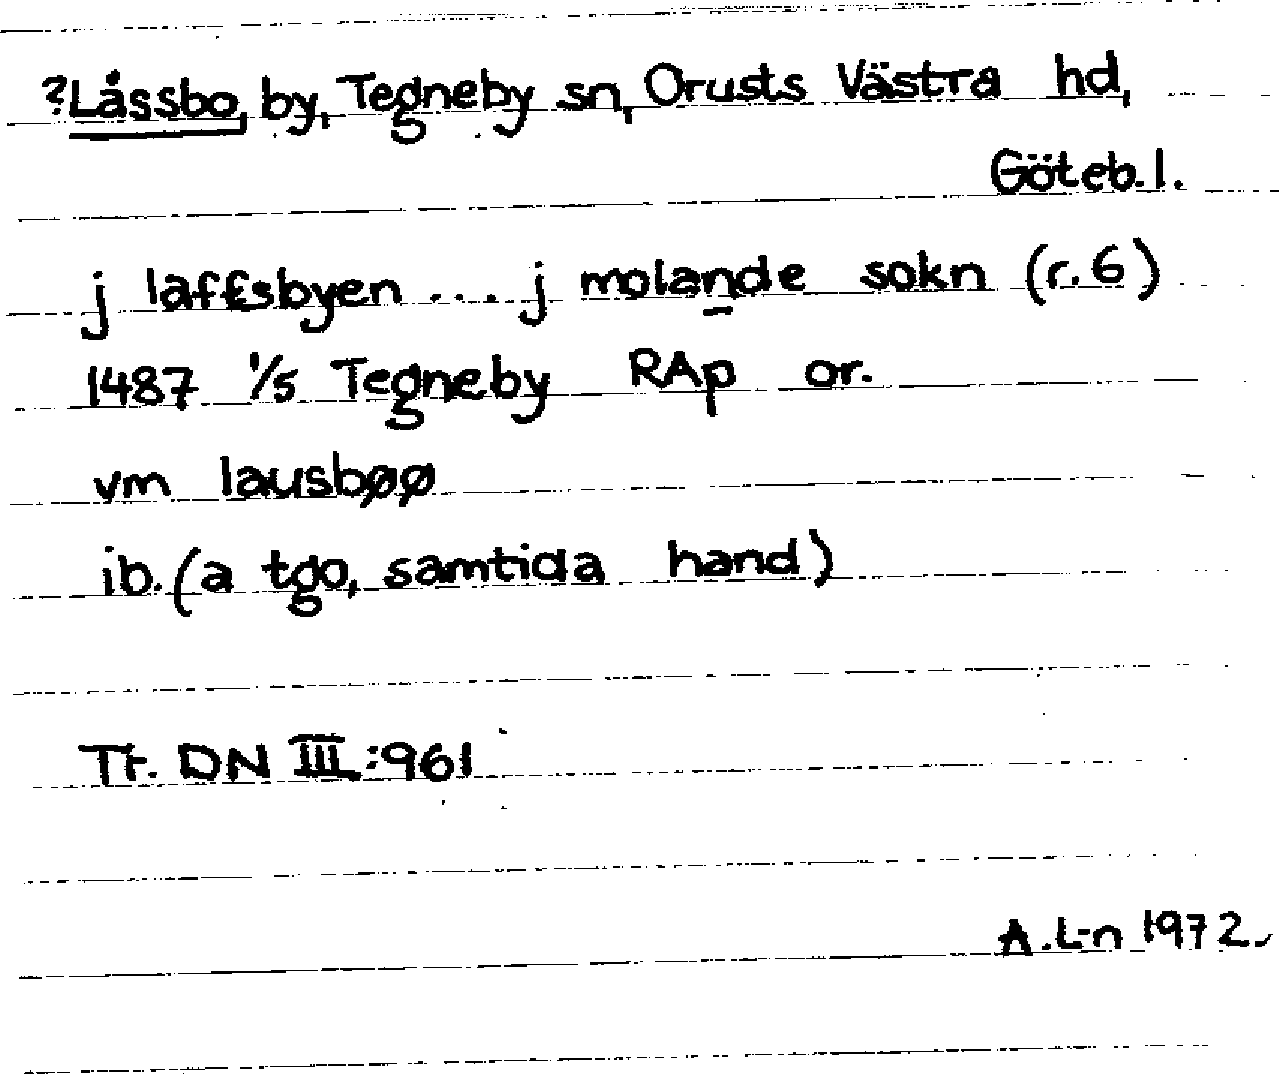 ?Låssbo, by, Tegneby sn, Orusts Västra hd,
Göteb.l.
j laffsbyen .... j molande sokn (r.6)
1487 1/5 Tegneby RAp or.
vm lausbøø
ib. (a tgo, samtida hand)
Tr. DN III:961
A.L-n 1972.